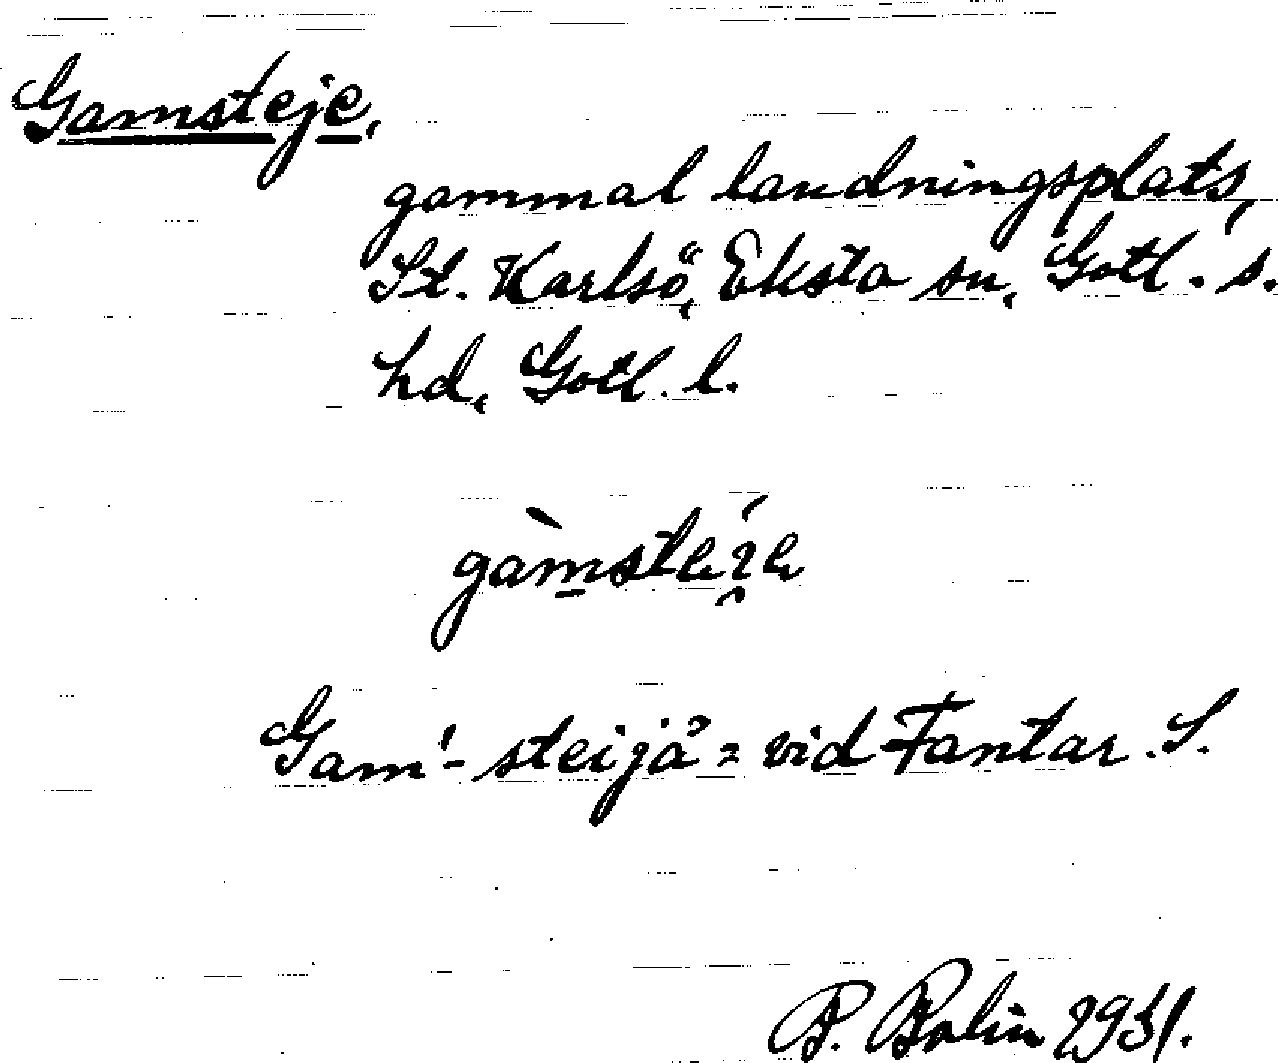 Gamsteje,
gammal landningsplats,
St. Karlsö, Eksta sn, Gotl. s.
hd, Gotl. l.
Gam'- steijå = vid Fantar. S.
P. Bolin 1931.